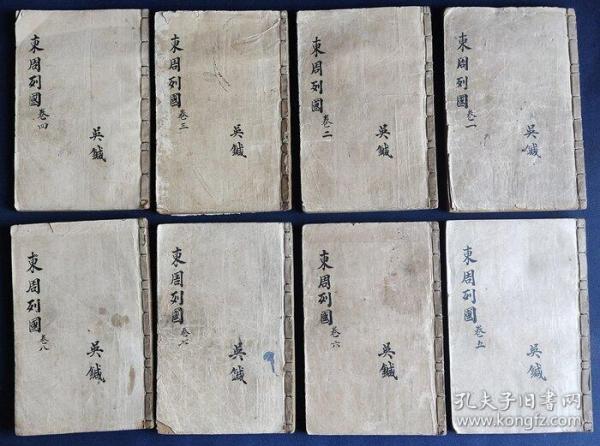 東周列國卷一
吳鋮
東周列國卷二
吳鋮
東周列國卷三
吳鋮
東周列國卷四
吳鋮
東周列國卷五
吳鋮
東周列國卷六
吳鋮
東周列國卷七
吳鋮
東周列國卷八
吳鋮
孔夫子旧书网
kongfz.com